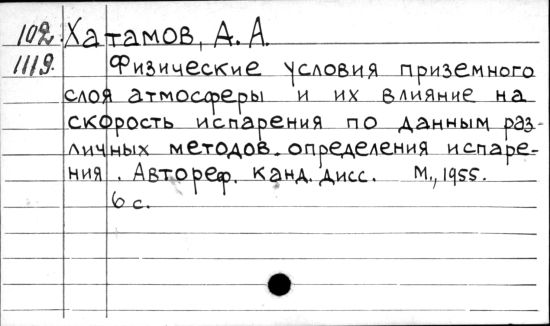 102. Хатамов, А. А.
1119. Физические условия приземного
слоя атмосферы и их влияние на
скорость испарения по данным раз-
личных методов. определения испаре-
ния. Автореф. канд. дисс. М., 1955.
6 с.